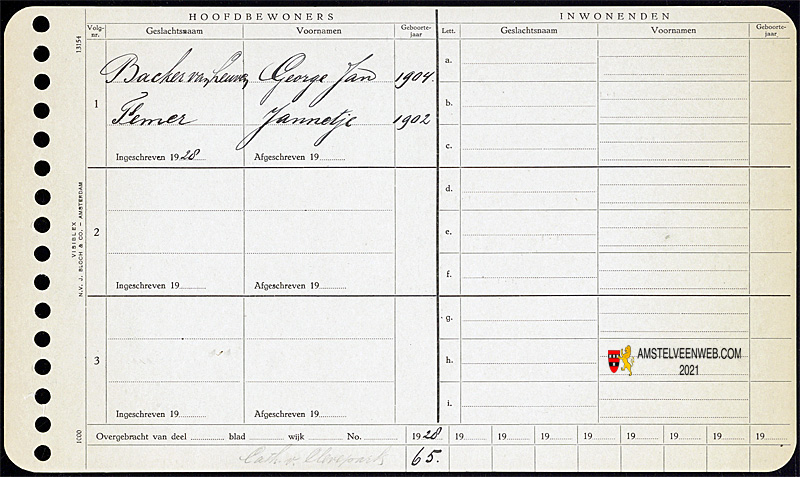 HOOFDBEWONERS
INWONENDEN
Volg-nr.
Geslachtsnaam
Voornamen
Geboorte-jaar
Lett.
Geslachtsnaam
Voornamen
Geboorte-jaar
13154
1
Backer van Leuven George Jan 1904.
Femer Jannetje 1902
Ingeschreven 1928
Afgeschreven 19
a.
b.
c.
2
Ingeschreven 19
Afgeschreven 19
d.
e.
f.
VISIBLEX
N.V. J. BLOCH & CO. – AMSTERDAM
3
Ingeschreven 19
Afgeschreven 19
g.
h.
i.
AMSTELVEENWEB.COM
2021
1000
Overgebracht van deel blad wijk No. 1928 19 19 19 19 19 19 19 19
65.